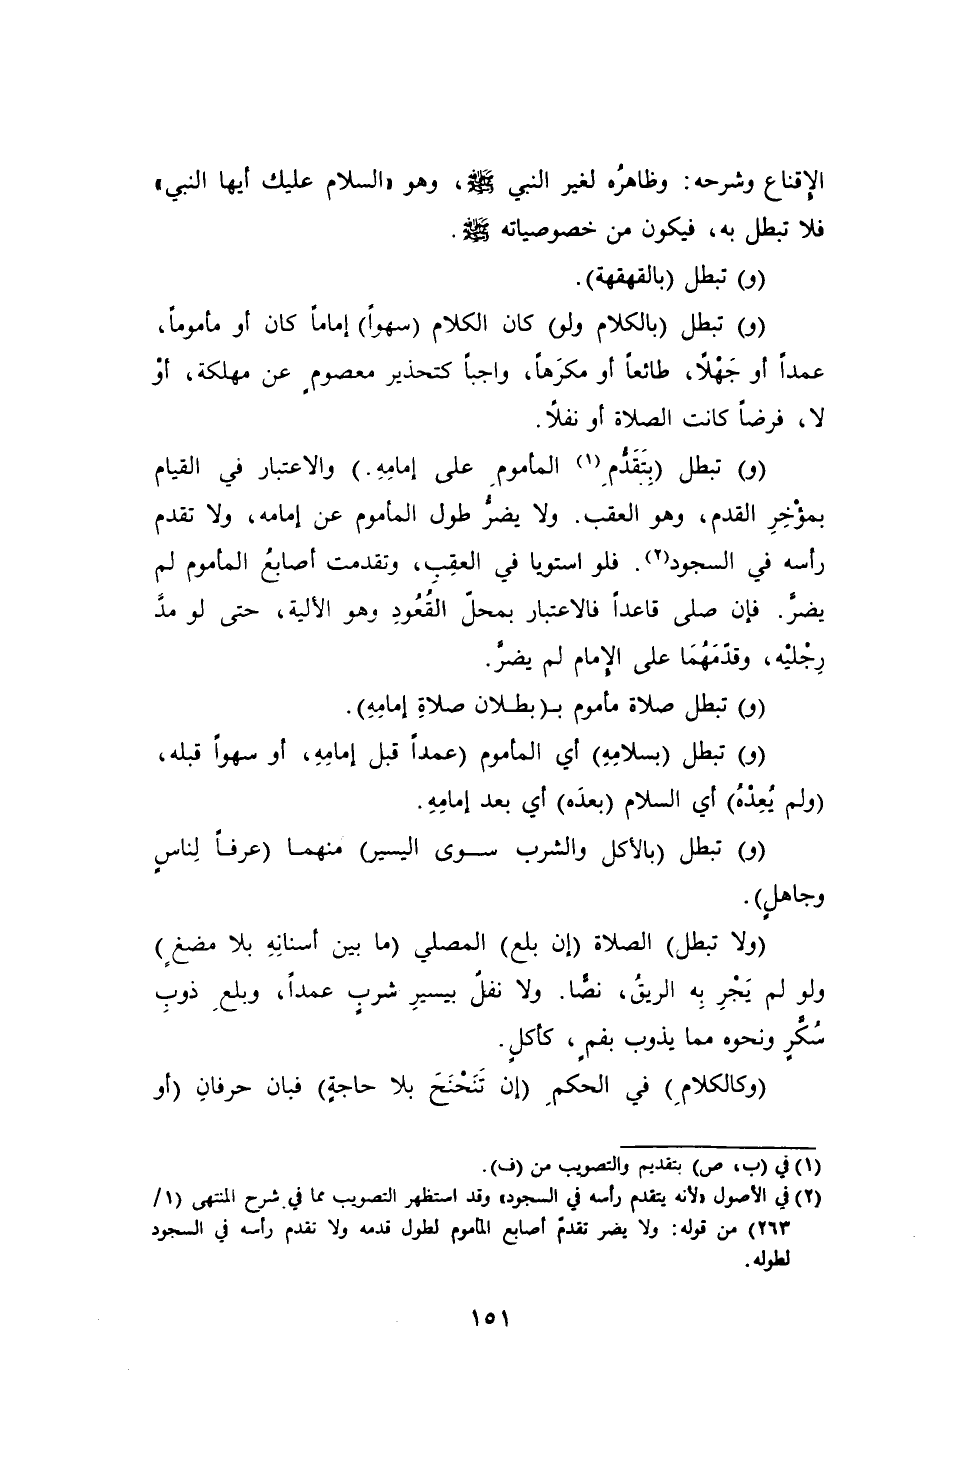 الإقناع وشرحه: وظاهرُه لغير النبي ﷺ، وهو «السلام عليك أيها النبي»
فلا تبطل به، فيكون من خصوصياته ﷺ.
(و) تبطل (بالقهقهة).
(و) تبطل (بالكلام ولو) كان الكلام (سهواً) إماماً كان أو مأموماً،
عمداً أو جَهْلًا، طائعاً أو مكرَهاً، واجباً كتحذير معصومٍ عن مهلكة، أوْ
لا، فرضاً كانت الصلاة أو نفلًا.
(و) تبطل (بِتَقَدُّمِ(١) المأمومِ على إمامِهِ.) والاعتبار في القيام
بمؤْخِرِ القدم، وهو العقب. ولا يضرُّ طول المأموم عن إمامه، ولا تقدم
رأسه في السجود(٢). فلو استويا في العقِبِ، وتقدمت أصابعُ المأموم لم
يضرَّ. فإن صلى قاعداً فالاعتبار بمحلّ القُعُودِ وهو الألية، حتى لو مدَّ
رِجْليْه، وقدّمَهُمَا على الإمام لم يضرَّ.
(و) تبطل صلاة مأموم بـ(بطلان صلاةِ إمامِهِ).
(و) تبطل (بسلامِهِ) أي المأموم (عمداً قبل إمامِهِ، أو سهواً قبله،
(ولم يُعِدْهُ) أي السلام (بعدَه) أي بعد إمامِهِ.
(و) تبطل (بالأكل والشرب سوى اليسير) منهما (عرفاً لِناسٍ
وجاهلٍ).
(ولا تبطل) الصلاة (إن بلع) المصلي (ما بين أسنانِهِ بلا مضغٍ)
ولو لم يَجْرِ بِه الريقُ، نصًّا. ولا نفلٌ بيسيرِ شربٍ عمداً، وبلعِ ذوبِ
سُكَّرٍ ونحوه مما يذوب بفمٍ، كأكلٍ.
(وكالكلامِ) في الحكمِ (إن تَنَحْنَحَ بلا حاجةٍ) فبان حرفانِ (أو
(١) في (ب، ص) بتقديم والتصويب من (ف).
(٢) في الأصول «لأنه يتقدم رأسه في السجود» وقد استظهر التصويب مما في شرح المنتهى (١/
٢٦٣) من قوله: ولا يضر تقدمُ أصابع المأموم لطول قدمه ولا تقدم رأسه في السجود
لطوله.
١٥١